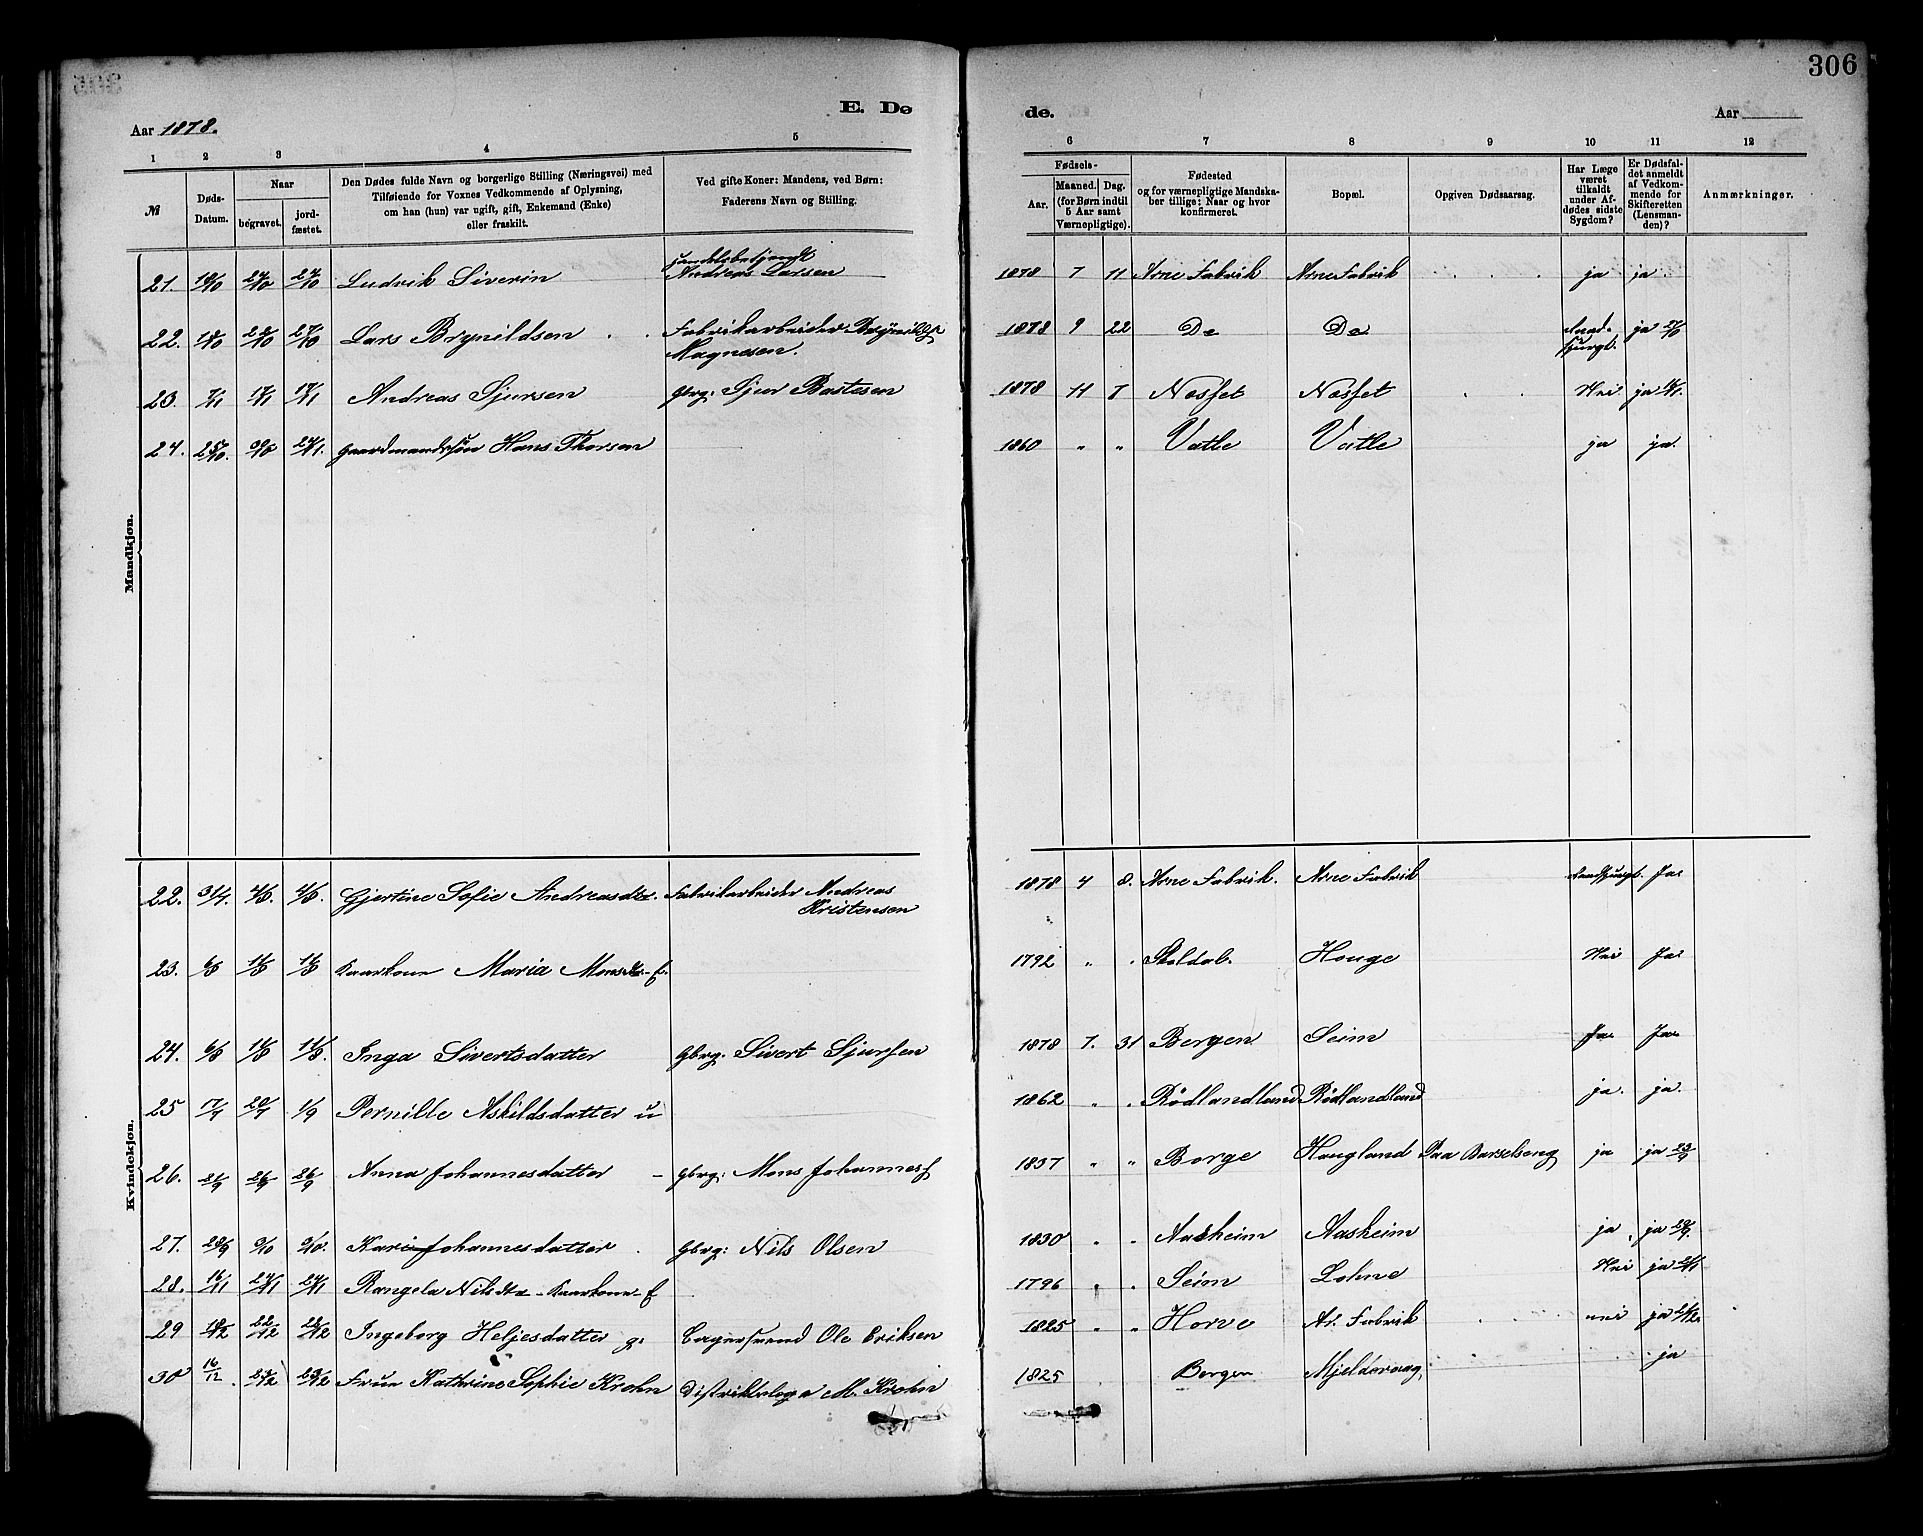 306
E. Dø
de.
Aar 1878.
Aar
1 2 3 4 5 6 7 8 9 10 11 12
№
Døds-Datum.
Naar
begravet.
jord-fæstet.
Den Dødes fulde Navn og borgerlige Stilling (Næringsvei) med
Tilføiende for Voxnes Vedkommende af Oplysning,
om han (hun) var ugift, gift, Enkemand (Enke)
eller fraskilt.
Ved gifte Koner: Mandens, ved Børn:
Faderens Navn og Stilling.
Fødsels-
Aar.
Maaned. Dag.
(for Børn indtil
5 Aar samt
Værnepligtige).
Fødested
og for værnepligtige Mandska-
ber tillige: Naar og hvor
konfirmeret.
Bopæl.
Opgiven Dødsaarsag.
Har Læge
været
tilkaldt
under Af-
dødes sidste
Sygdom?
Er Dødsfal-
det anmeldt
af Vedkom-
mende for
Skifteretten
(Lensman-
den)?
Anmærkninger.
Mandkjøn.
21. Ludvik Siverin Andreas Larsen 1878 7 11 Arne Fabrik Arne Fabrik ja ja
22. Lars Brynildsen Fabrikarbeider Brynild 1878 9 22 Do Do ja
Magnesen.
23. Andreas Sjursen Gbrg: Sjur Bastesen 1878 11 7 Næsset Næsset Nei ja
24. Gaardmandssøn Hans Thorsen 1860 " " Vatle Vatle ja ja.
Kvindekjøn.
22. 31/7. Gjertine Sofie Andreasdtr. Fabrikarbeider Andreas 1878 4 8. Arne Fabrik. Arne Fabrik Ja
Kristensen
23. Kaarkone Maria Monsdtr - E. 1792 " " Skoldal. Houge Nei Ja
24. Inga Sivertsdatter Gbrg: Sivert Sjursen 1878 7. 31 Bergen Seim Ja Ja
25 17/7 20/7 1/9 Pernille Askildsdatter u 1862 " " Rødlandland Rødlandland ja. ja.
26. 21/9 26/9 26/9 Anna Johannesdatter - Gbrg: Mons Johannes 1857 " " Borge Haugland Paa Barselseng ja ja 23/9
27. Kari Johannesdatter Gbrg: Nils Olsen 1830 " " Aasheim Aasheim ja ja
28. 16/11 Rangela Nilsdtr - Kaarkone - E 1796 " " Seim Lohne Nei ja
29 22/12 Ingeborg Heljesdatter g. Ole Eriksen 1825 " " Horve Ar. Fabrik nei ja
30 16/12 Fruen Kathrine Sophie Krohn Distriktslæge M. Krohn 1825 Bergen Mjeldevaag ja